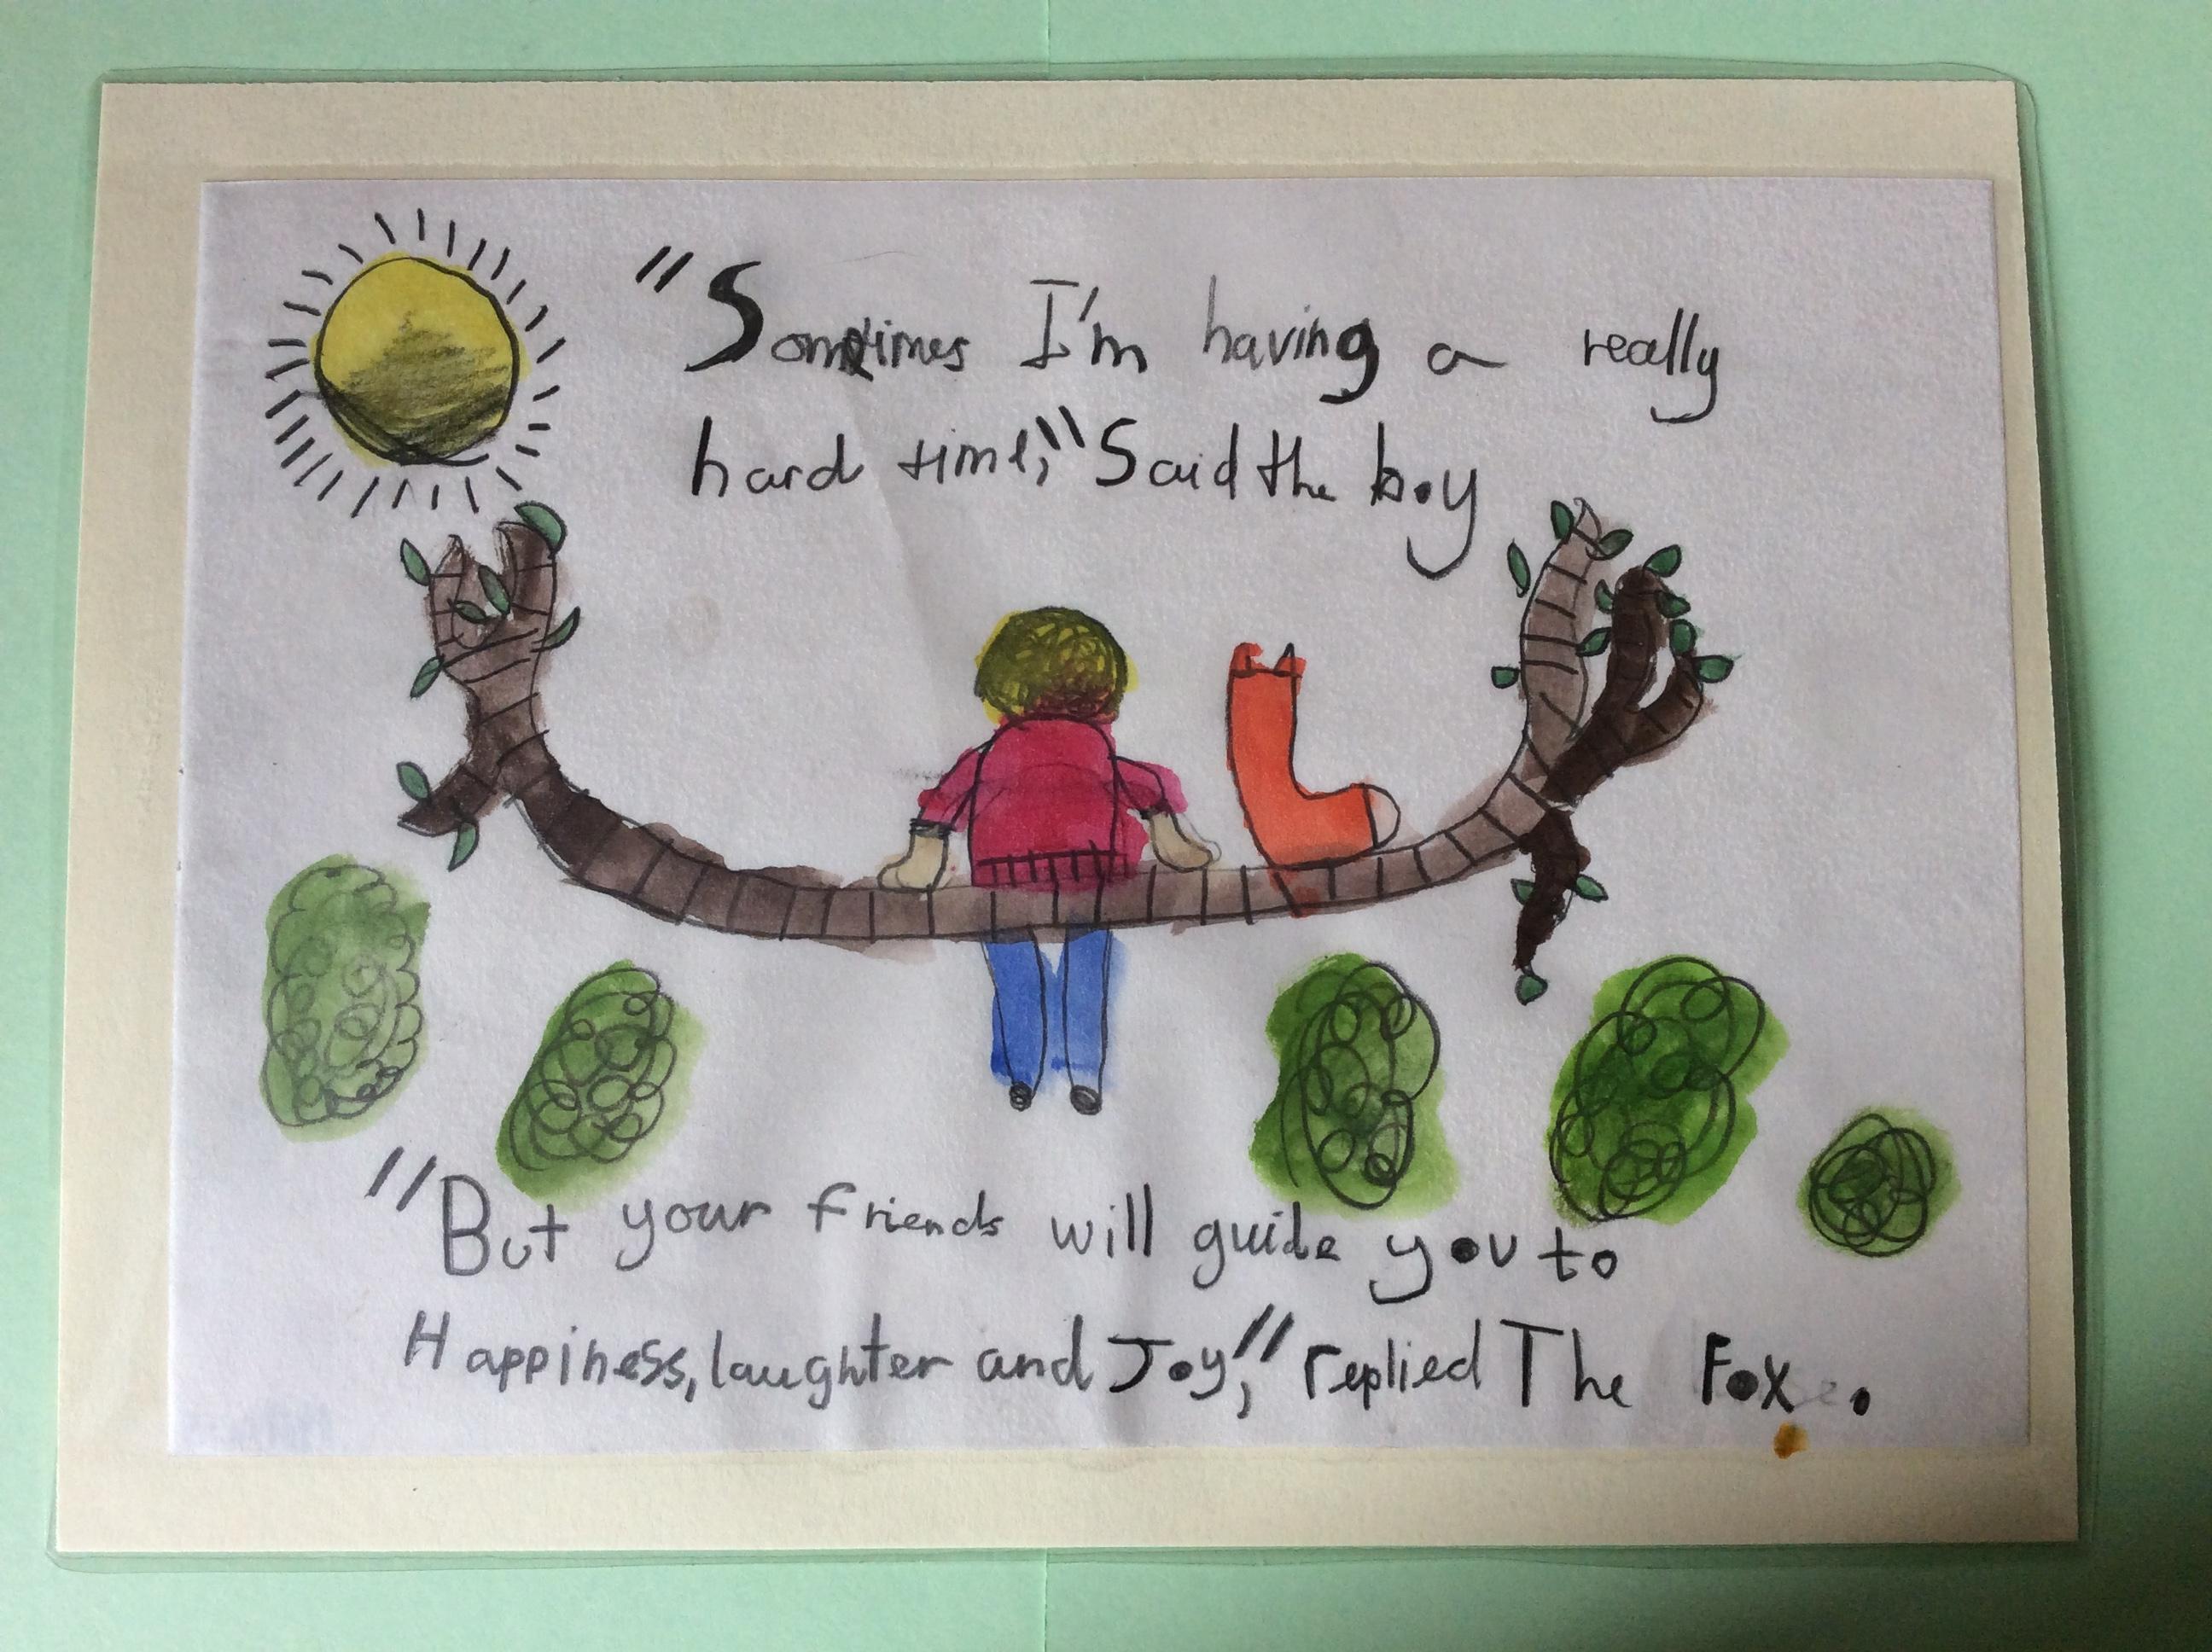 "Sometimes I'm having a really
hard time," Said the boy
"But your friends will guide you to
Happiness, laughter and Joy," replied The Fox.